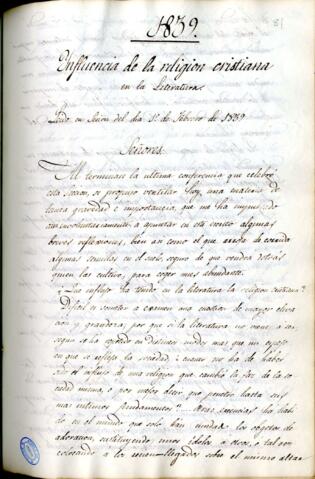 1839.
81
Influencia de la religion cristiana
en la Literatura.
Leido en Sesion del dia 1º de Febrero de 1839
Señores.
Al terminar la ultima conferencia que celebró
esta seccion, se propuso ventilar hoy una materia de
tanta gravedad e importancia, que me ha impulsado
involuntariamente a apuntar en este escrito algunas
breves reflexiones, bien asi como el que arroja de corrida
algunas semillas en el suelo, seguro de que vendra detras
quien las cultive, para coger mies abundante.
¿Que influjo ha tenido en la literatura la religion cristiana?
Dificil es someter a examen una cuestion de mayor eleva
cion y grandeza; por que si la literatura no viene a ser,
segun se ha repetido en distintos modos mas que un espejo
en que se refleja la sociedad ¿cuanto no ha de haber
sido el influjo de una religion que cambió la faz de la so
ciedad misma, o por mejor decir que penetró hasta sus
mas intimos fundamentos? Otras creencias ha habi
do en el mundo que solo han mudado los objetos de
adoracion, sustituyendo unos idolos a otros, o tal vez
colocando a los recien-llegados sobre el mismo altar